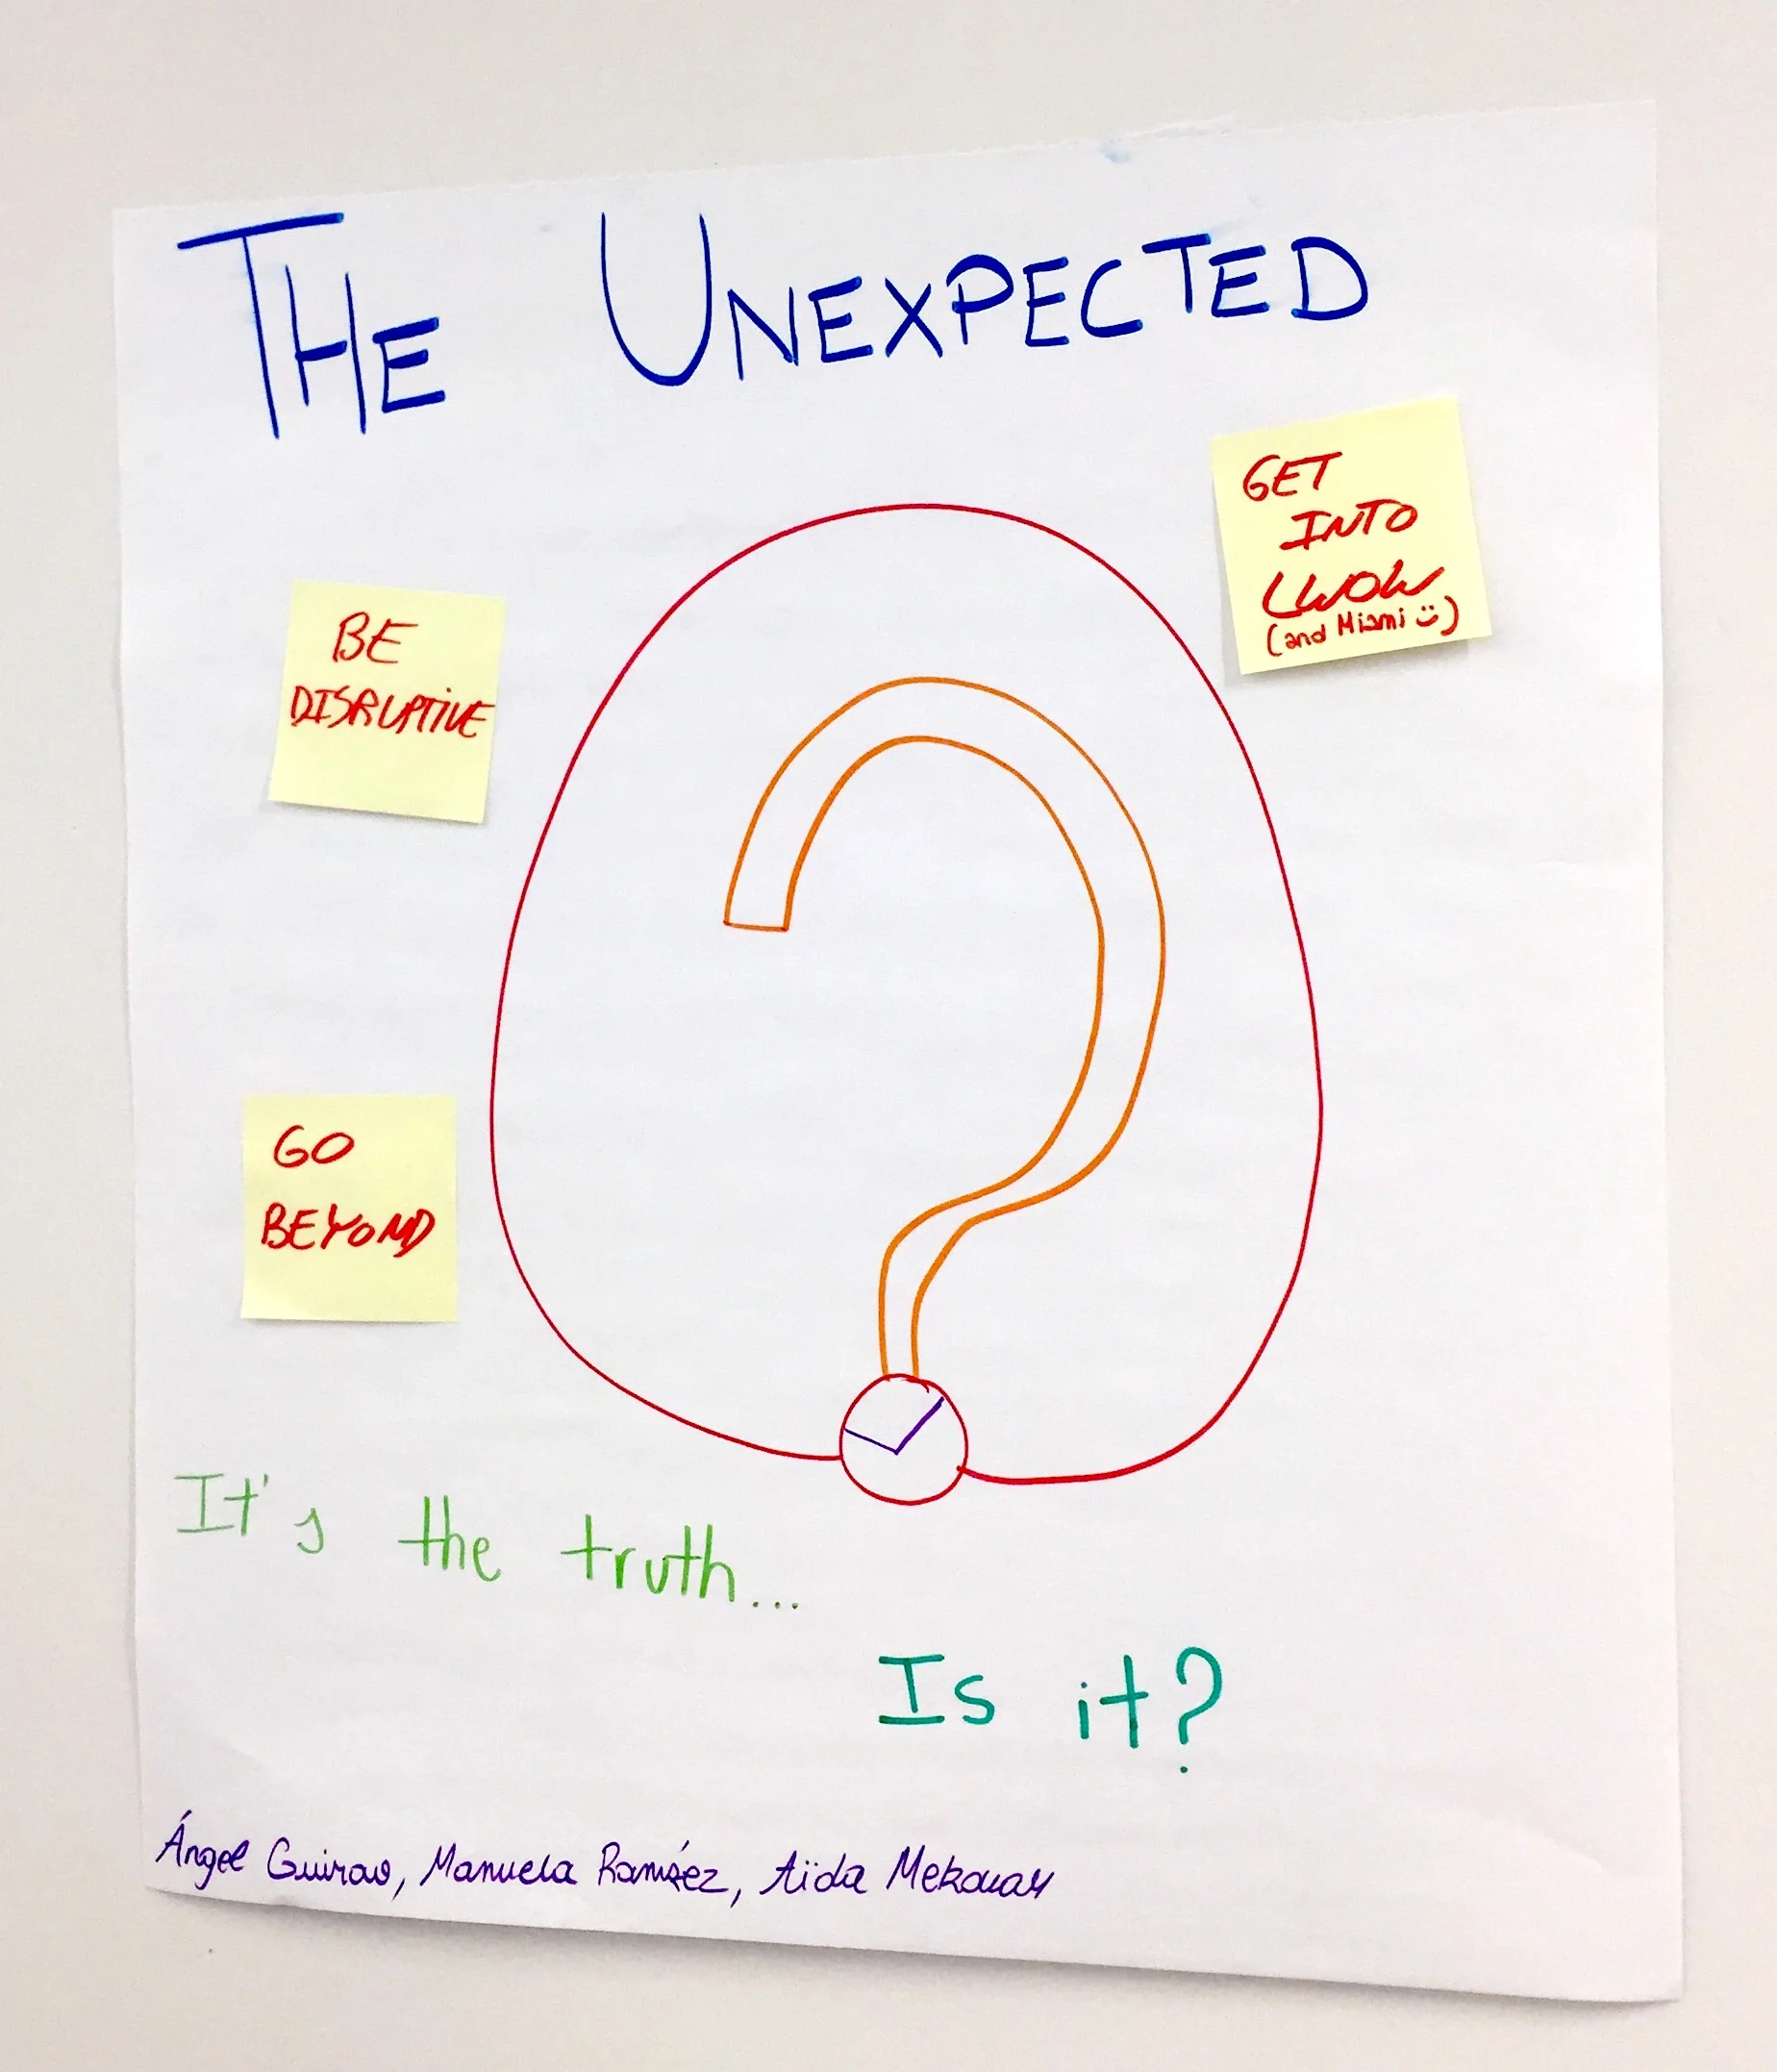 THE UNEXPECTED
GET
INTO
LWOW
(and Miami :))
BE
DISRUPTIVE
GO
BEYOND
It's the truth...
Is it?
Ángel Guirao, Manuela Ramírez, Aïda Mekouar